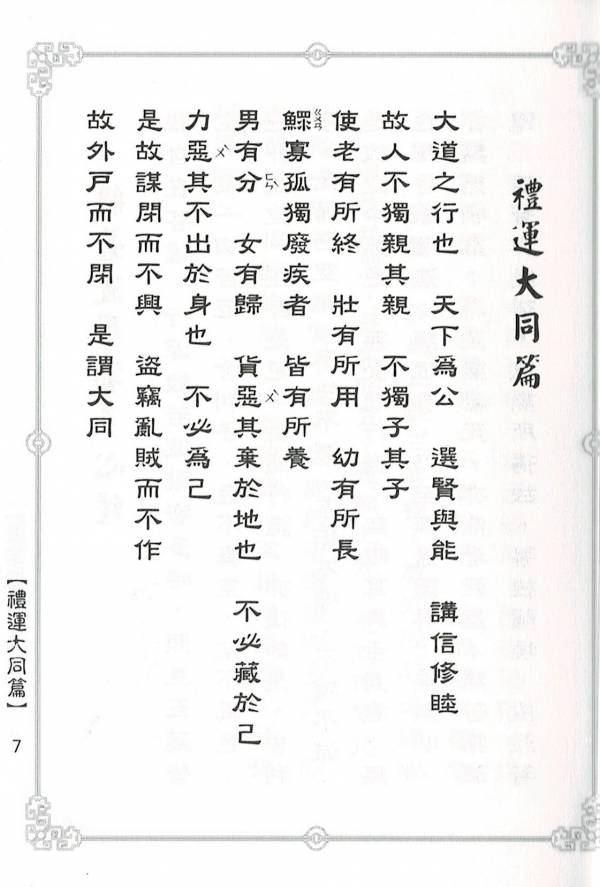 禮運大同篇
大道之行也　天下為公　選賢與能　講信修睦
故人不獨親其親　不獨子其子
使老有所終　壯有所用　幼有所長
鰥ㄍㄨㄢ寡孤獨廢疾者　皆有所養
男有分ㄈㄣˋ　女有歸　貨惡ㄨˋ其棄於地也　不必藏於己
力惡ㄨˋ其不出於身也　不必為己
是故謀閉而不興　盜竊亂賊而不作
故外戶而不閉　是謂大同
【禮運大同篇】
7